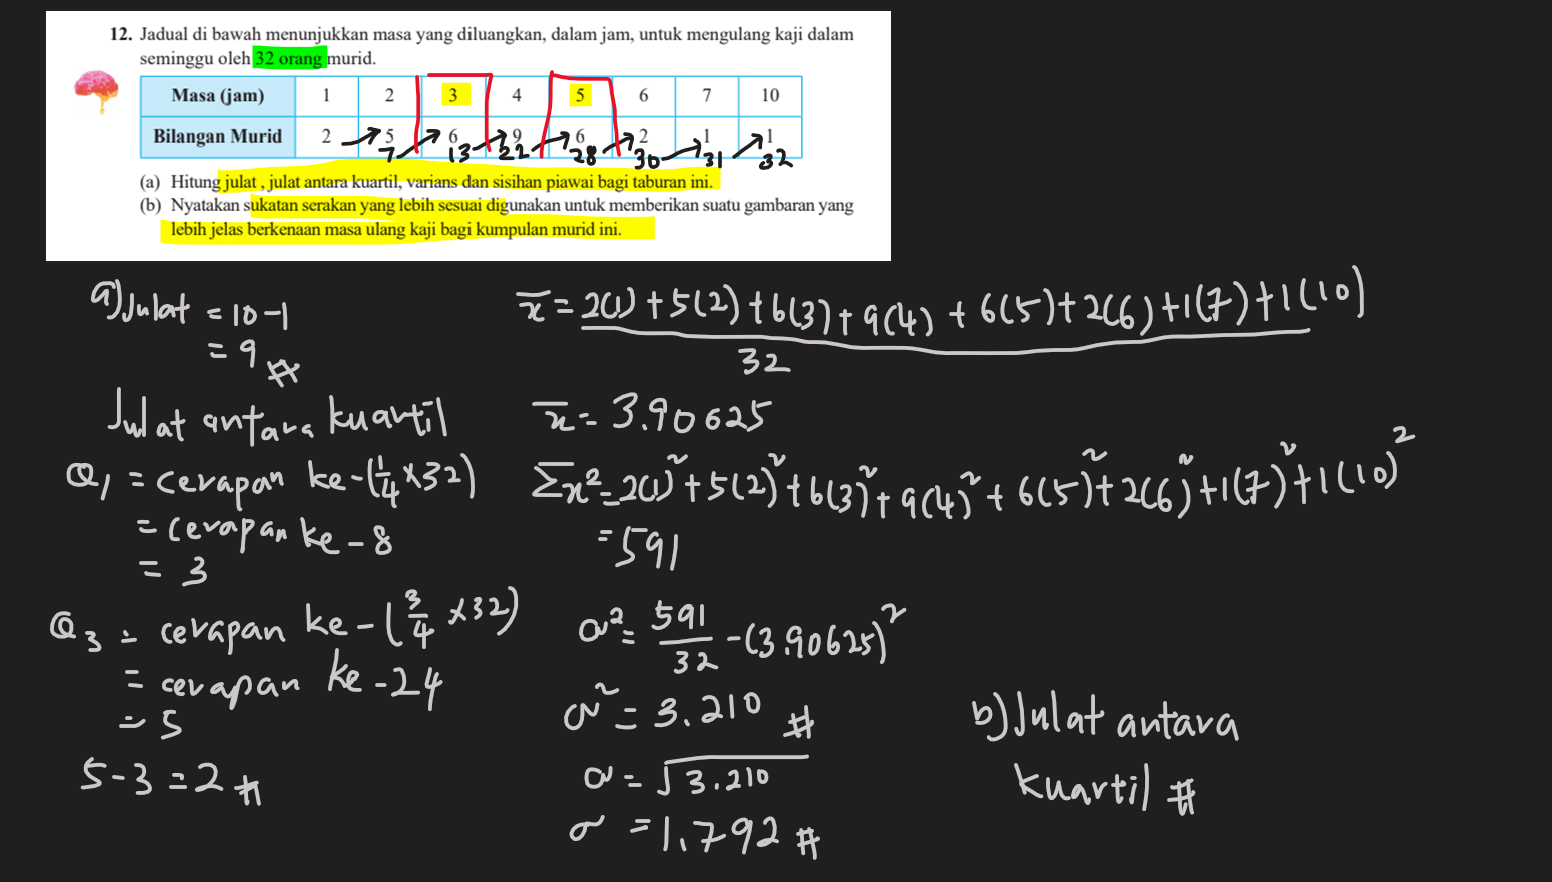 12. Jadual di bawah menunjukkan masa yang diluangkan, dalam jam, untuk mengulang kaji dalam
seminggu oleh 32 orang murid.
Masa (jam) 1 2 3 4 5 6 7 10
Bilangan Murid 2 5 6 9 6 2 1 1
7 13 22 28 30 31 32
(a) Hitung julat, julat antara kuartil, varians dan sisihan piawai bagi taburan ini.
(b) Nyatakan sukatan serakan yang lebih sesuai digunakan untuk memberikan suatu gambaran yang
lebih jelas berkenaan masa ulang kaji bagi kumpulan murid ini.
a) Julat = 10-1
= 9 #
Julat antara kuartil
Q₁ = cerapan ke-(1/4 × 32)
= cerapan ke-8
= 3
Q₃ = cerapan ke-(3/4 × 32)
= cerapan ke-24
= 5
5-3 = 2 #
x̄ = 2(1) + 5(2) + 6(3) + 9(4) + 6(5) + 2(6) + 1(7) + 1(10)
32
x̄ = 3.90625
Σx² = 2(1)² + 5(2)² + 6(3)² + 9(4)² + 6(5)² + 2(6)² + 1(7)² + 1(10)²
= 591
σ² = 591/32 - (3.90625)²
σ² = 3.210 #
σ = √3.210
σ = 1.792 #
b) Julat antara
kuartil #